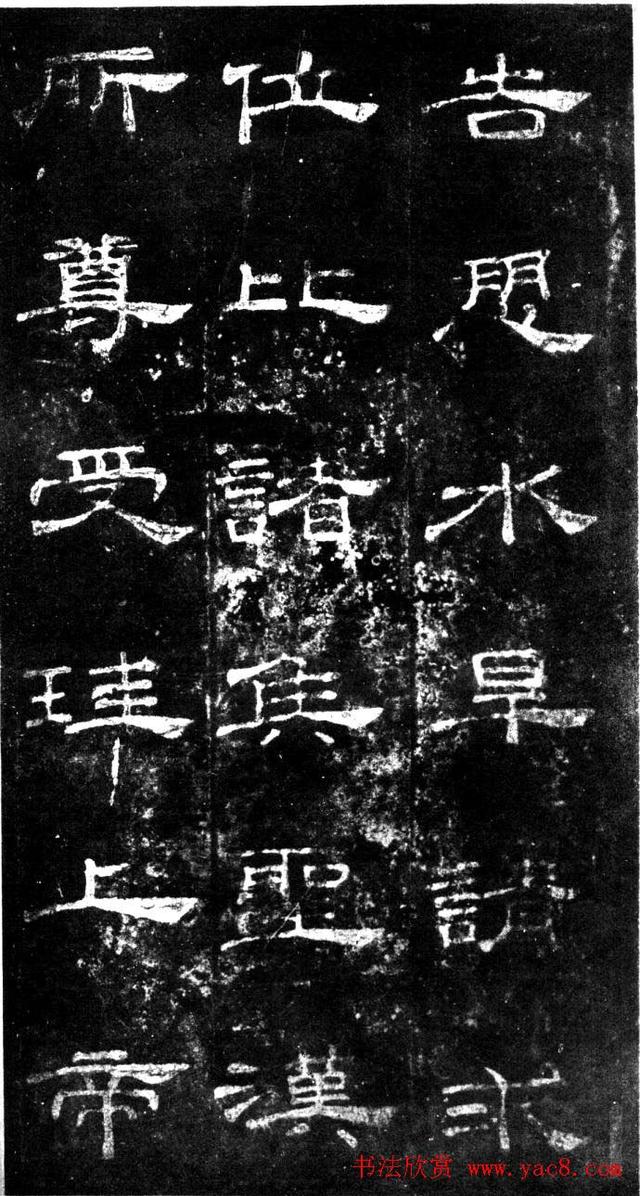 告愬水旱請求
位比諸矦聖漢
所尊受珪上帝
书法欣赏 www.yac8.com